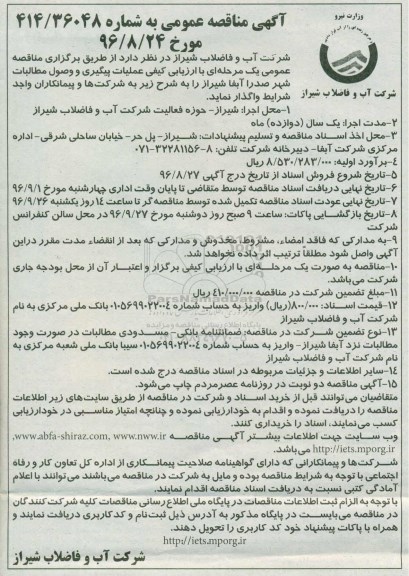 وزارت نیرو
شرکت آب و فاضلاب شیراز
آگهی مناقصه عمومی به شماره ۴۱۴/۳۶۰۴۸
مورخ ۹۶/۸/۲۴
شرکت آب و فاضلاب شیراز در نظر دارد از طریق برگزاری مناقصه
عمومی یک مرحله‌ای با ارزیابی کیفی عملیات پیگیری و وصول مطالبات
شهر صدرا آبفا شیراز را به شرح زیر به شرکت‌ها و پیمانکاران واجد
شرایط واگذار نماید.
۱-محل اجرا: شیراز- حوزه فعالیت شرکت آب و فاضلاب شیراز
۲-مدت اجرا: یک سال (دوازده) ماه
۳-محل اخذ اسناد مناقصه و تسلیم پیشنهادات: شیراز- پل حر- خیابان ساحلی شرقی- اداره
مرکزی شرکت آبفا- دبیرخانه شرکت تلفن: ۸-۳۲۲۸۱۱۵۶-۰۷۱
۴-برآورد اولیه: ۸/۵۳۰/۲۸۳/۰۰۰ ریال
۵-تاریخ شروع فروش اسناد از تاریخ درج آگهی ۹۶/۸/۲۷
۶-تاریخ نهایی دریافت اسناد مناقصه توسط متقاضی تا پایان وقت اداری چهارشنبه مورخ ۹۶/۹/۱
۷-تاریخ نهایی عودت اسناد مناقصه تکمیل شده توسط مناقصه گر تا ساعت ۱۴ روز یکشنبه ۹۶/۹/۲۶
۸-تاریخ بازگشایی پاکات: ساعت ۹ صبح روز دوشنبه مورخ ۹۶/۹/۲۷ در محل سالن کنفرانس
شرکت
۹-به مدارکی که فاقد امضاء، مشروط، مخدوش و مدارکی که بعد از انقضاء مدت مقرر دراین
آگهی واصل شود مطلقاً ترتیب اثر داده نخواهد شد.
۱۰-مناقصه به صورت یک مرحله‌ای با ارزیابی کیفی برگزار و اعتبار آن از محل بودجه جاری
شرکت می‌باشد.
۱۱-مبلغ تضمین شرکت در مناقصه ۴۱۰/۰۰۰/۰۰۰ ریال
۱۲-قیمت اسناد: ۸۰۰/۰۰۰(ریال) واریز به حساب شماره ۰۱۰۵۶۹۹۰۲۲۰۰۴ بانک ملی مرکزی به نام
شرکت آب و فاضلاب شیراز
۱۳-نوع تضمین شرکت در مناقصه: ضمانتنامه بانکی- مسدودی مطالبات در صورت وجود
مطالبات نزد آبفا شیراز- واریز به حساب شماره ۰۱۰۵۶۹۹۰۲۲۰۰۴ سیبا بانک ملی شعبه مرکزی به
نام شرکت آب و فاضلاب شیراز
۱۴-سایر اطلاعات و جزئیات مربوطه در اسناد مناقصه درج شده است.
۱۵-آگهی مناقصه دو نوبت در روزنامه عصرمردم چاپ می‌شود.
متقاضیان می‌توانند قبل از خرید اسناد و شرکت در مناقصه از طریق سایت‌های زیر اطلاعات
مناقصه را دریافت نموده و اقدام به خودارزیابی نموده و چنانچه امتیاز مناسبی در خودارزیابی
کسب می‌نمایند، اسناد را خریداری کنند.
وب سایت جهت اطلاعات بیشتر آگهی مناقصه www.abfa-shiraz.com, www.nww.ir,
http://iets.mporg.ir می‌باشد.
شرکت‌ها و پیمانکارانی که دارای گواهینامه صلاحیت پیمانکاری از اداره کل تعاون کار و رفاه
اجتماعی با توجه به شرایط مناقصه بوده و مایل به شرکت در مناقصه می‌باشند می‌توانند با اعلام
آمادگی کتبی نسبت به دریافت اسناد مناقصه اقدام نمایند.
با توجه به الزام ثبت اطلاعات مناقصات در پایگاه ملی اطلاع رسانی مناقصات کلیه شرکت کنندگان
در مناقصه می‌بایست در پایگاه مذکور به آدرس ذیل ثبت‌نام و کد کاربری دریافت نمایند و
همراه با پاکات پیشنهاد خود کد کاربری را تحویل دهند.
http://iets.mporg.ir
شرکت آب و فاضلاب شیراز